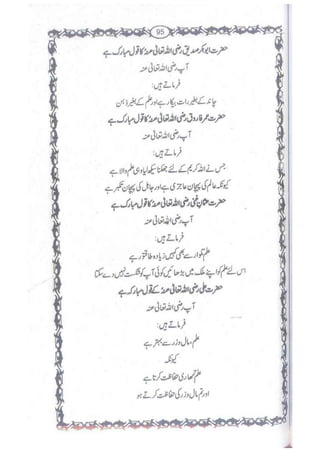 95
حضرت ابوبکر صدیق رضی اللہ تعالیٰ عنہ کا قول مبارک ہے
آپ رضی اللہ تعالیٰ عنہ
فرماتے ہیں:
چاند کے بغیر رات بیکار ہے اور علم کے بغیر ذہن
حضرت عمر فاروق رضی اللہ تعالیٰ عنہ کا قول مبارک ہے
آپ رضی اللہ تعالیٰ عنہ
فرماتے ہیں:
جس نے اللہ کریم کے لئے جھکنا سیکھ لیا وہی علم والا ہے
کیونکہ عالم کی پہچان عاجزی ہے اور جاہل کی پہچان تکبر ہے
حضرت عثمان غنی رضی اللہ تعالیٰ عنہ کا قول مبارک ہے
آپ رضی اللہ تعالیٰ عنہ
فرماتے ہیں:
علم تلوار سے بھی کہیں زیادہ طاقتور ہے
اس لئے علم کو اپنے ملک میں بڑھائیں کوئی آپ کو شکست نہیں دے سکتا
حضرت علی رضی اللہ تعالیٰ عنہ کے قول مبارک ہے
آپ رضی اللہ تعالیٰ عنہ
فرماتے ہیں:
علم، مال و زر سے بہتر ہے
کیونکہ
علم تمھاری حفاظت کرتا ہے
اور تم مال و زر کی حفاظت کرتے ہو